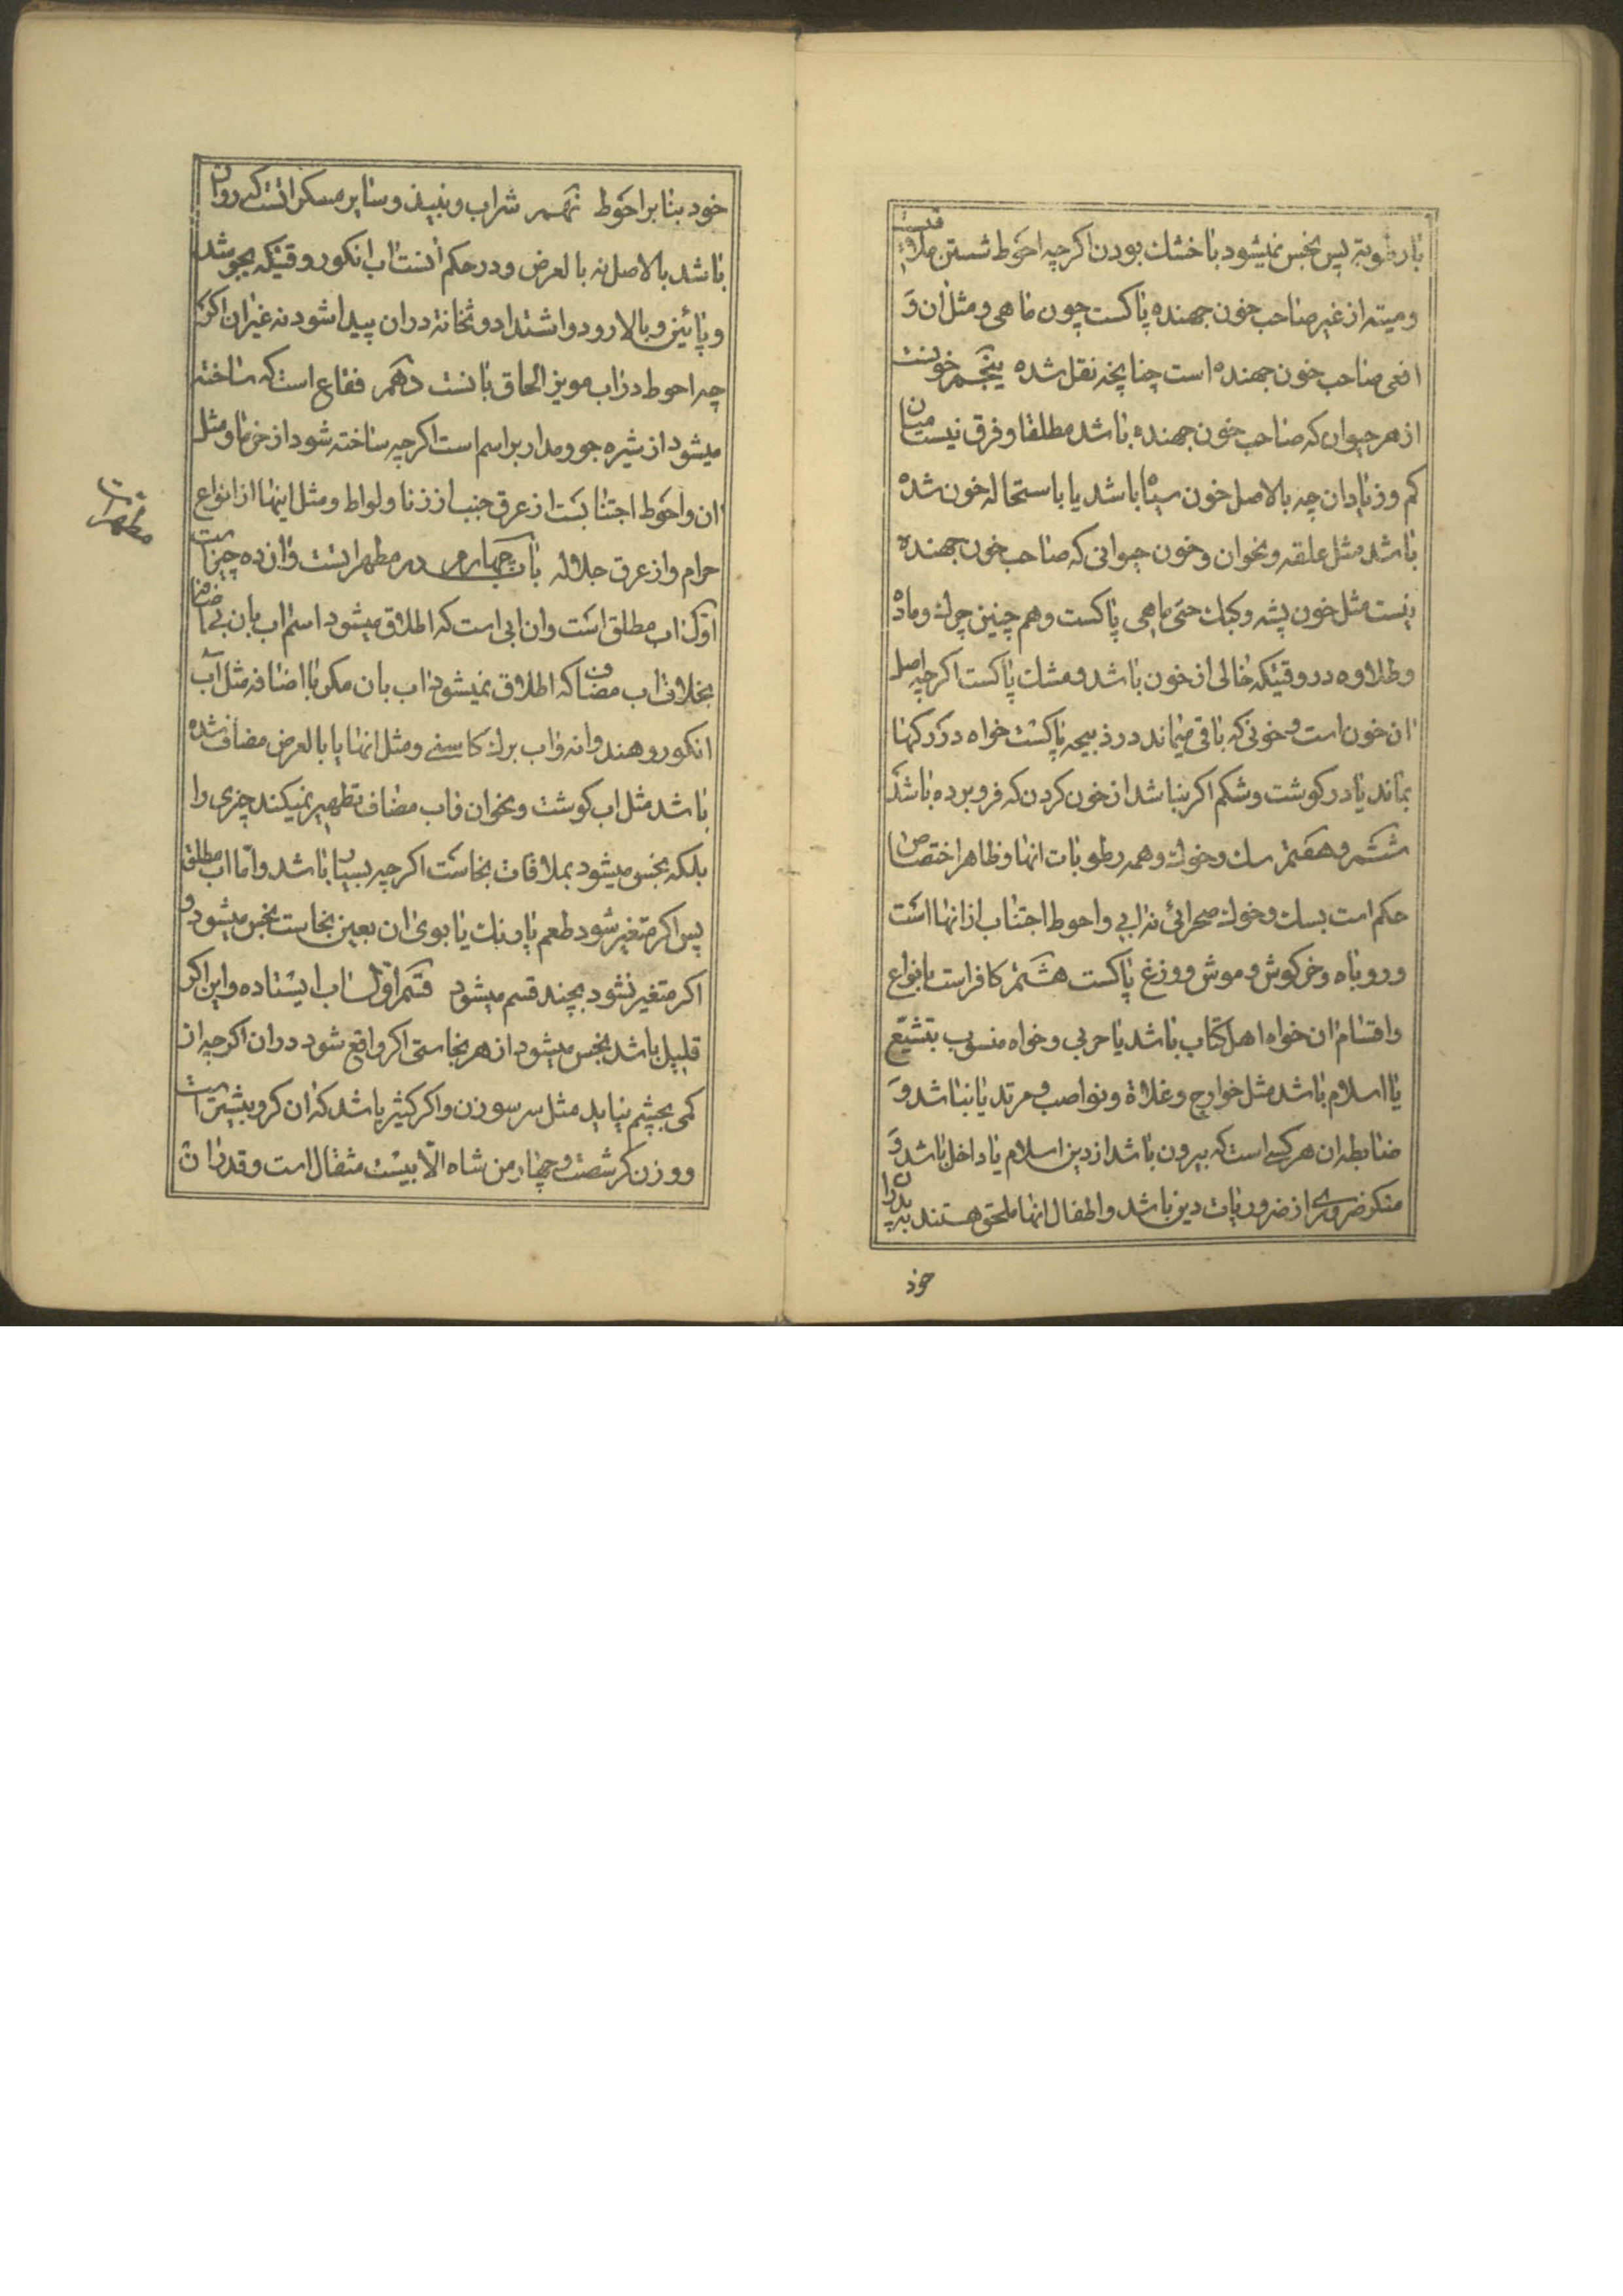 با رطوبة پس نجس نمیشود با خشك بودن اکرچه احوط شستن ملاقیست
و میته از غیر صاحب خون جهنده پاکست چون ماهی و مثل ان و
افعی صاحب خون جهنده است چنانچه نقل شده پنجم خونست
از هر حیوان که صاحب خون جهنده باشد مطلقا و فرق نیست میان
کم و زیاد ان چه بالاصل خون سیاه باشد یا باستحاله خون شده
باشد مثل علقه و نحو ان و خون حیوانی که صاحب خون جهنده
نیست مثل خون پشه و کیك حتی ماهی پاکست و هم چنین چرك و ماده
و طلاوه در وقتیکه خالی از خون باشد و مشك پاکست اکرچه اصل
ان خون است و خونی که باقی میماند در ذبیحه پاکست خواه در رکها
بماند یا در کوشت و شکم اکر نباشد از خون کردن که فرو برده باشد
ششم و هفتم سك و خوك و همه رطوبات انها و ظاهر اختصاص
حکم است بسك و خوك صحرائی نه ابی و احوط اجتناب از انها است
و روباه و خرکوش و موش و وزغ پاکست هشتم کافر است بانواع
و اقسام ان خواه اهل کتاب باشد یا حربی و خواه منسوب بتشیّع
یا اسلام باشد مثل خوارج و غلاة و نواصب و مرتد یا نباشد و
ضابطه ان هر کسی است که بیرون باشد از دین اسلام یا داخل باشد و
منکر ضروری از ضروریات دین باشد و اطفال انها ملحق هستند بپدران
خود
خود بنا بر احوط نهم شراب و نبیذ و سایر مسکراتست که روان
باشد بالاصل نه بالعرض و در حکم انست اب انکور وقتیکه بجوشد
و پائین و بالا رود و اشتداد و ثخانة در ان پیدا شود نه غیر ان اکر
چه احوط در اب مویز الحاق بانست دهم فقاع است که ساخته
میشود از شیره جو و مدار بر اسم است اکرچه ساخته شود از خرما و مثل
ان و احوط اجتنابست از عرق جنب از زنا و لواط و مثل اینها از انواع
حرام و از عرق جلاله باب چهارم در مطهراتست و ان ده چیز است
مطهرات
اوّل اب مطلق است و ان ابی است که اطلاق میشود اسم اب بان بی اضافه
بخلاف اب مضاف که اطلاق نمیشود اب بان مکر با اضافه مثل آب
انکور و هندوانه و اب برك کاسنی و مثل انها یا بالعرض مضاف شده
باشد مثل اب کوشت و نحو ان و اب مضاف تطهیر نمیکند چیزی را
بلکه نجس میشود بملاقات نجاست اکرچه بسیار باشد و امّا اب مطلق
پس اکر متغیر شود طعم یا رنك یا بوی ان بعین نجاست نجس میشود و
اکر متغیر نشود بچند قسم میشود قسم اوّل اب ایستاده و این اکر
قلیل باشد نجس میشود از هر نجاستی اکر واقع شود در ان اکرچه از
کمی بچشم نیاید مثل سر سوزن و اکر کثیر باشد که ان کر و بیشتر است
و وزن کر شصت و چهار من شاه الّا بیست مثقال است و قدر ان